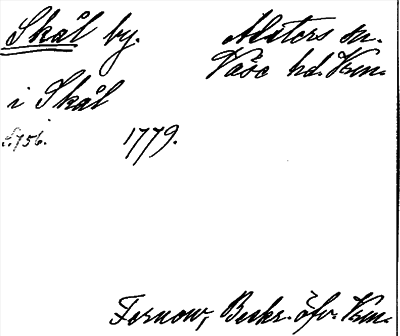 Skål by. Alsters sn.
Väse hd. Vrm.
i Skål
s. 756. 1779.
Fernow, Beskr. öfv. Vrm.